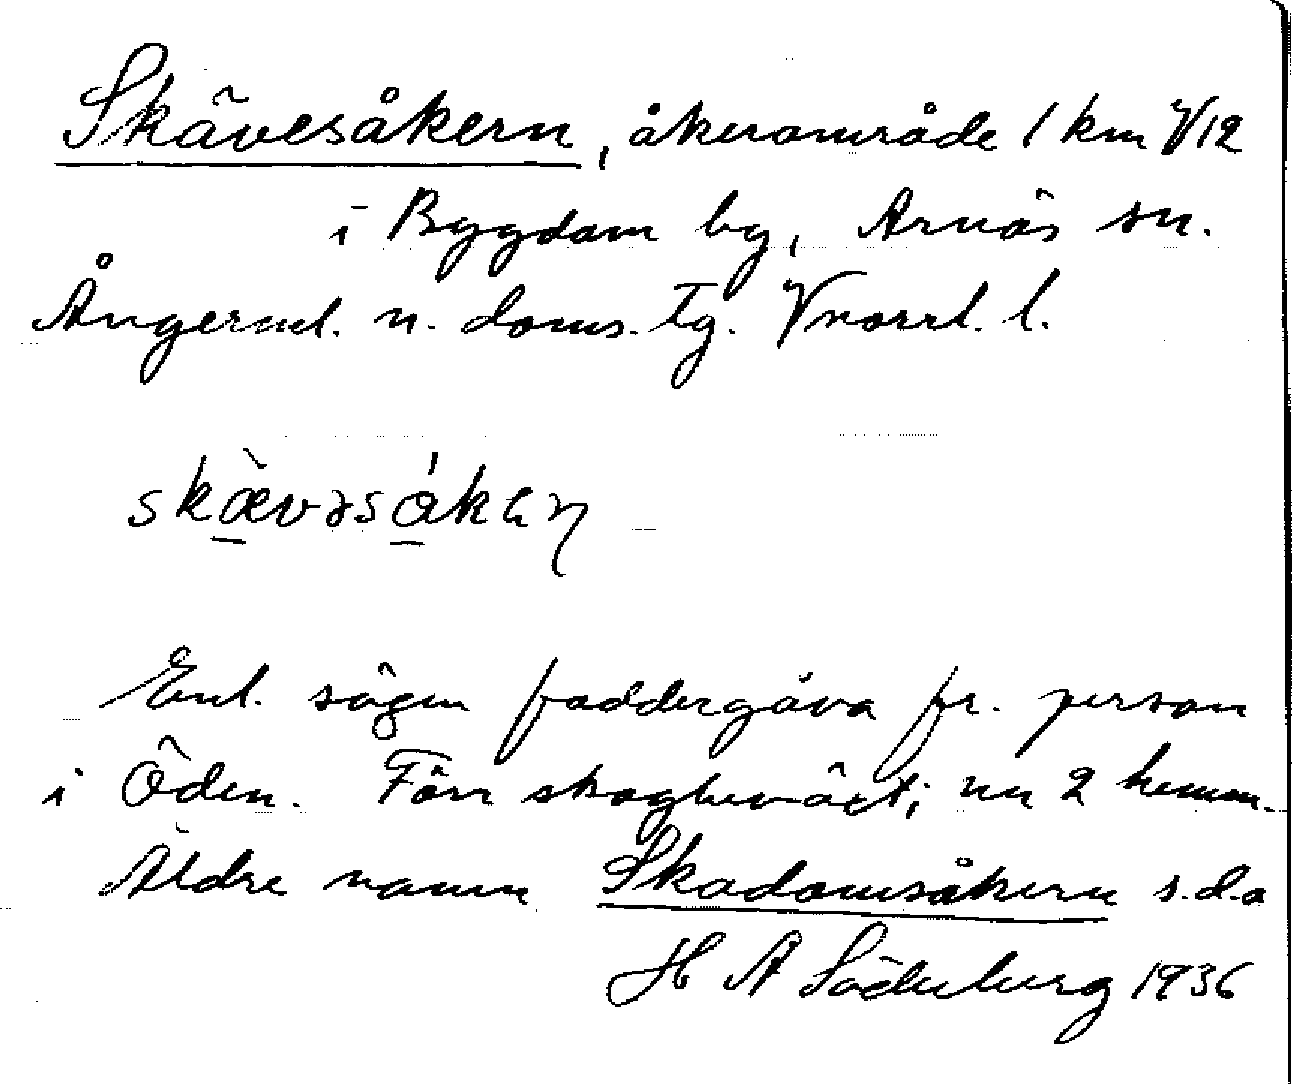 Skävesåkern, åkerområde 1 km V12
i Bygdom by, Arnäs sn.
Ångerml. n. doms. Tg. Vnorrl. l.
skævəsåkeṇ
Enl. sägen faddergåva fr. person
i Öden. Förr skogbeväxt; nu 2 hemm.
Äldre namn Skadomsåkern s.d.o
H A Söderberg 1936